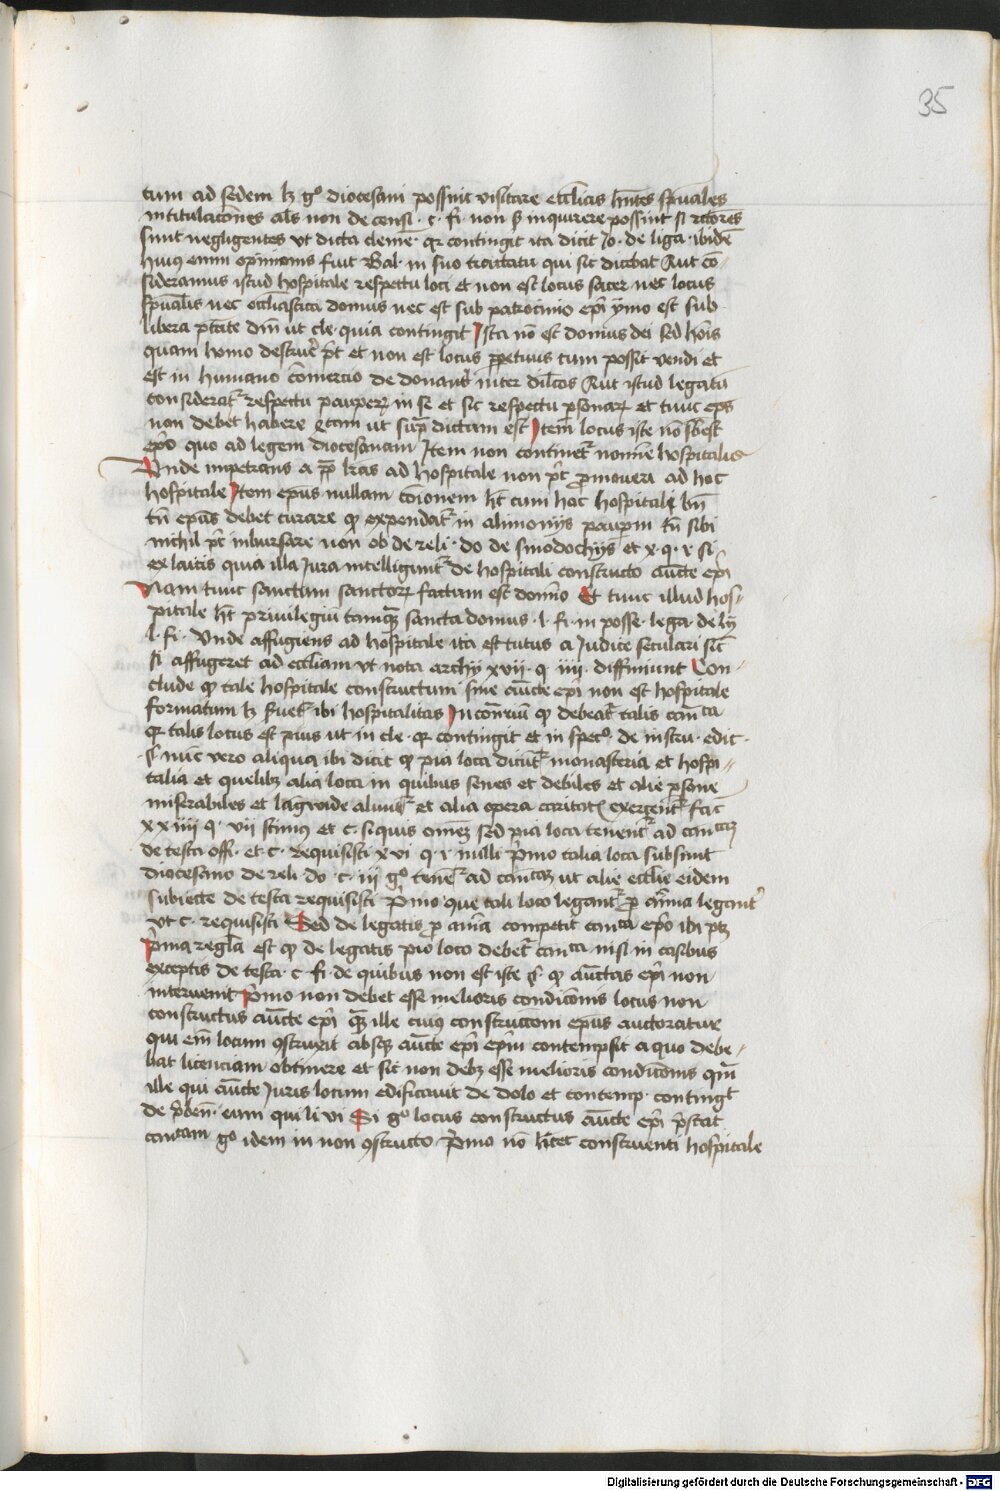 35
tum ad sedem hʒ gͦ diocesani possint visitare eccl̄ias hn̄tes spūales
intitulatōnes al̄s non de censi · c · fi · non s̄ inquirere possint si rectores
sunt negligentes vt dicta cleme · qr contingit ita dicit Jo · de liga · ibidē
Huius enim opinionis fuit Bal · in suo tractatu qui sic dicebat Aut cō-
sideramus istud hospitale respectu loci et non est locus sacer nec locus
spūalis nec ecclīastica domus nec est sub patrocinio epī ymo est sub
libera ptāte dnī ut cle · quia contingit Ista nō est domus dei sed hoīs
quam homo destrue' pt̄ et non est locus ꝑpetuus cum possit vendi et
est in humano cōmercio de donaut' inter dilc̄os Aut istud legatū
considerat' respectu pauperꝝ in se et sic respectu ꝑsonarꝝ et tunc eps
non debet habere qrtam ut sup̄ dictum est Item locus iste nō sbēst
epō quo ad legem diocesanam Item non continet' nomine hospitalis
Unde impetrans a pp̄ lr̄as ad hospitale non pt̄ promoueri ad hoc
hospitale Item epūs nullam cōionem ht̄ cum hoc hospitali bn̄
tn̄ epūs debet curare qꝫ expendat' in alimonijs pauꝑum tn̄ sibi
nichil pt̄ inbursare non ob de reli · do de sinodochijs et x · q · i si
ex laicis quia illa Jura intelligunt' de hospitali constructo auc̄te epī
Nam tunc sanctum sanctorꝝ factum est domīo Et tunc illud hos-
pitale ht̄ priuilegiū tamqꝫ sancta domus · l · fi · in posse · lega · de lꝫ
l · fi · Vnde affugiens ad hospitale ita est tutus a Judice seculari sic̄
si affugeret ad eccl̄iam vt nota archy xvii · q · iiii · diffiniunt Con-
clude qꝫ tale hospitale constructum sine auc̄te epī non est hospitale
formatum hʒ ibi hospitalitas In cōn̄riū qꝫ debeat' talis can̄ᶜᵃ
qr talis locus est pius ut in cle · qr contingit et in specᵒ · de instru · edic ·
· § · nūc vero aliqua ibi dicit qꝫ pia loca dicūt' monasteria et hospi-
talia et quelibꝫ alia loca in quibus senes et debiles et alie ꝑsone
miserabiles et alunt' et alia opera caritatis exercent' fac̄
xxiiii q · vii et c · siquis omēꝫ sed pia loca tenent' ad can̄ᶜᵃᵐ
de testa off · et c · requisisti xvi q · i nulli Pͥmo talia loca subsunt
diocesano de reli · do · c · iij gͦ tenēt' ad can̄ᶜᵃᵐ ut alie eccl̄ie eidem
subiecte de testa requisisti Pͥmo que tali loco legant' ꝓ an̄ima legant'
vt c · requisisti Sed de legatis ꝓ aīa competit can̄ᶜᵃ epō ibi ptꝫ
Pͥma regl̄a est qꝫ de legatis pio loco debet' can̄ᶜᵃ nisi in casibus
exceptis de testa · c fi · de quibus non est iste § · qꝫ auc̄tas epī non
interuenit Pͥmo non debet esse melioris condicōnis locus non
constructus auc̄te epī qꝫ ille cuius construccōem epūs auctoratur
qui em̄ locum ꝯstruxit absqꝫ auc̄te epī epīm contempsit a quo debe-
bat licenciam obtinere et sic non debꝫ esse melioris condicōnis qm̄
ille qui auc̄te Juris locum edificauit de dolo et contemp · contingt
de pͥben · eum qui li vi Si gͦ locus constructus auc̄te epī pͥstat
can̄ᶜᵃᵐ gͦ idem in non ꝯstructo Pͥmo nō construenti hospitale
Digitalisierung gefördert durch die Deutsche Forschungsgemeinschaft - DFG